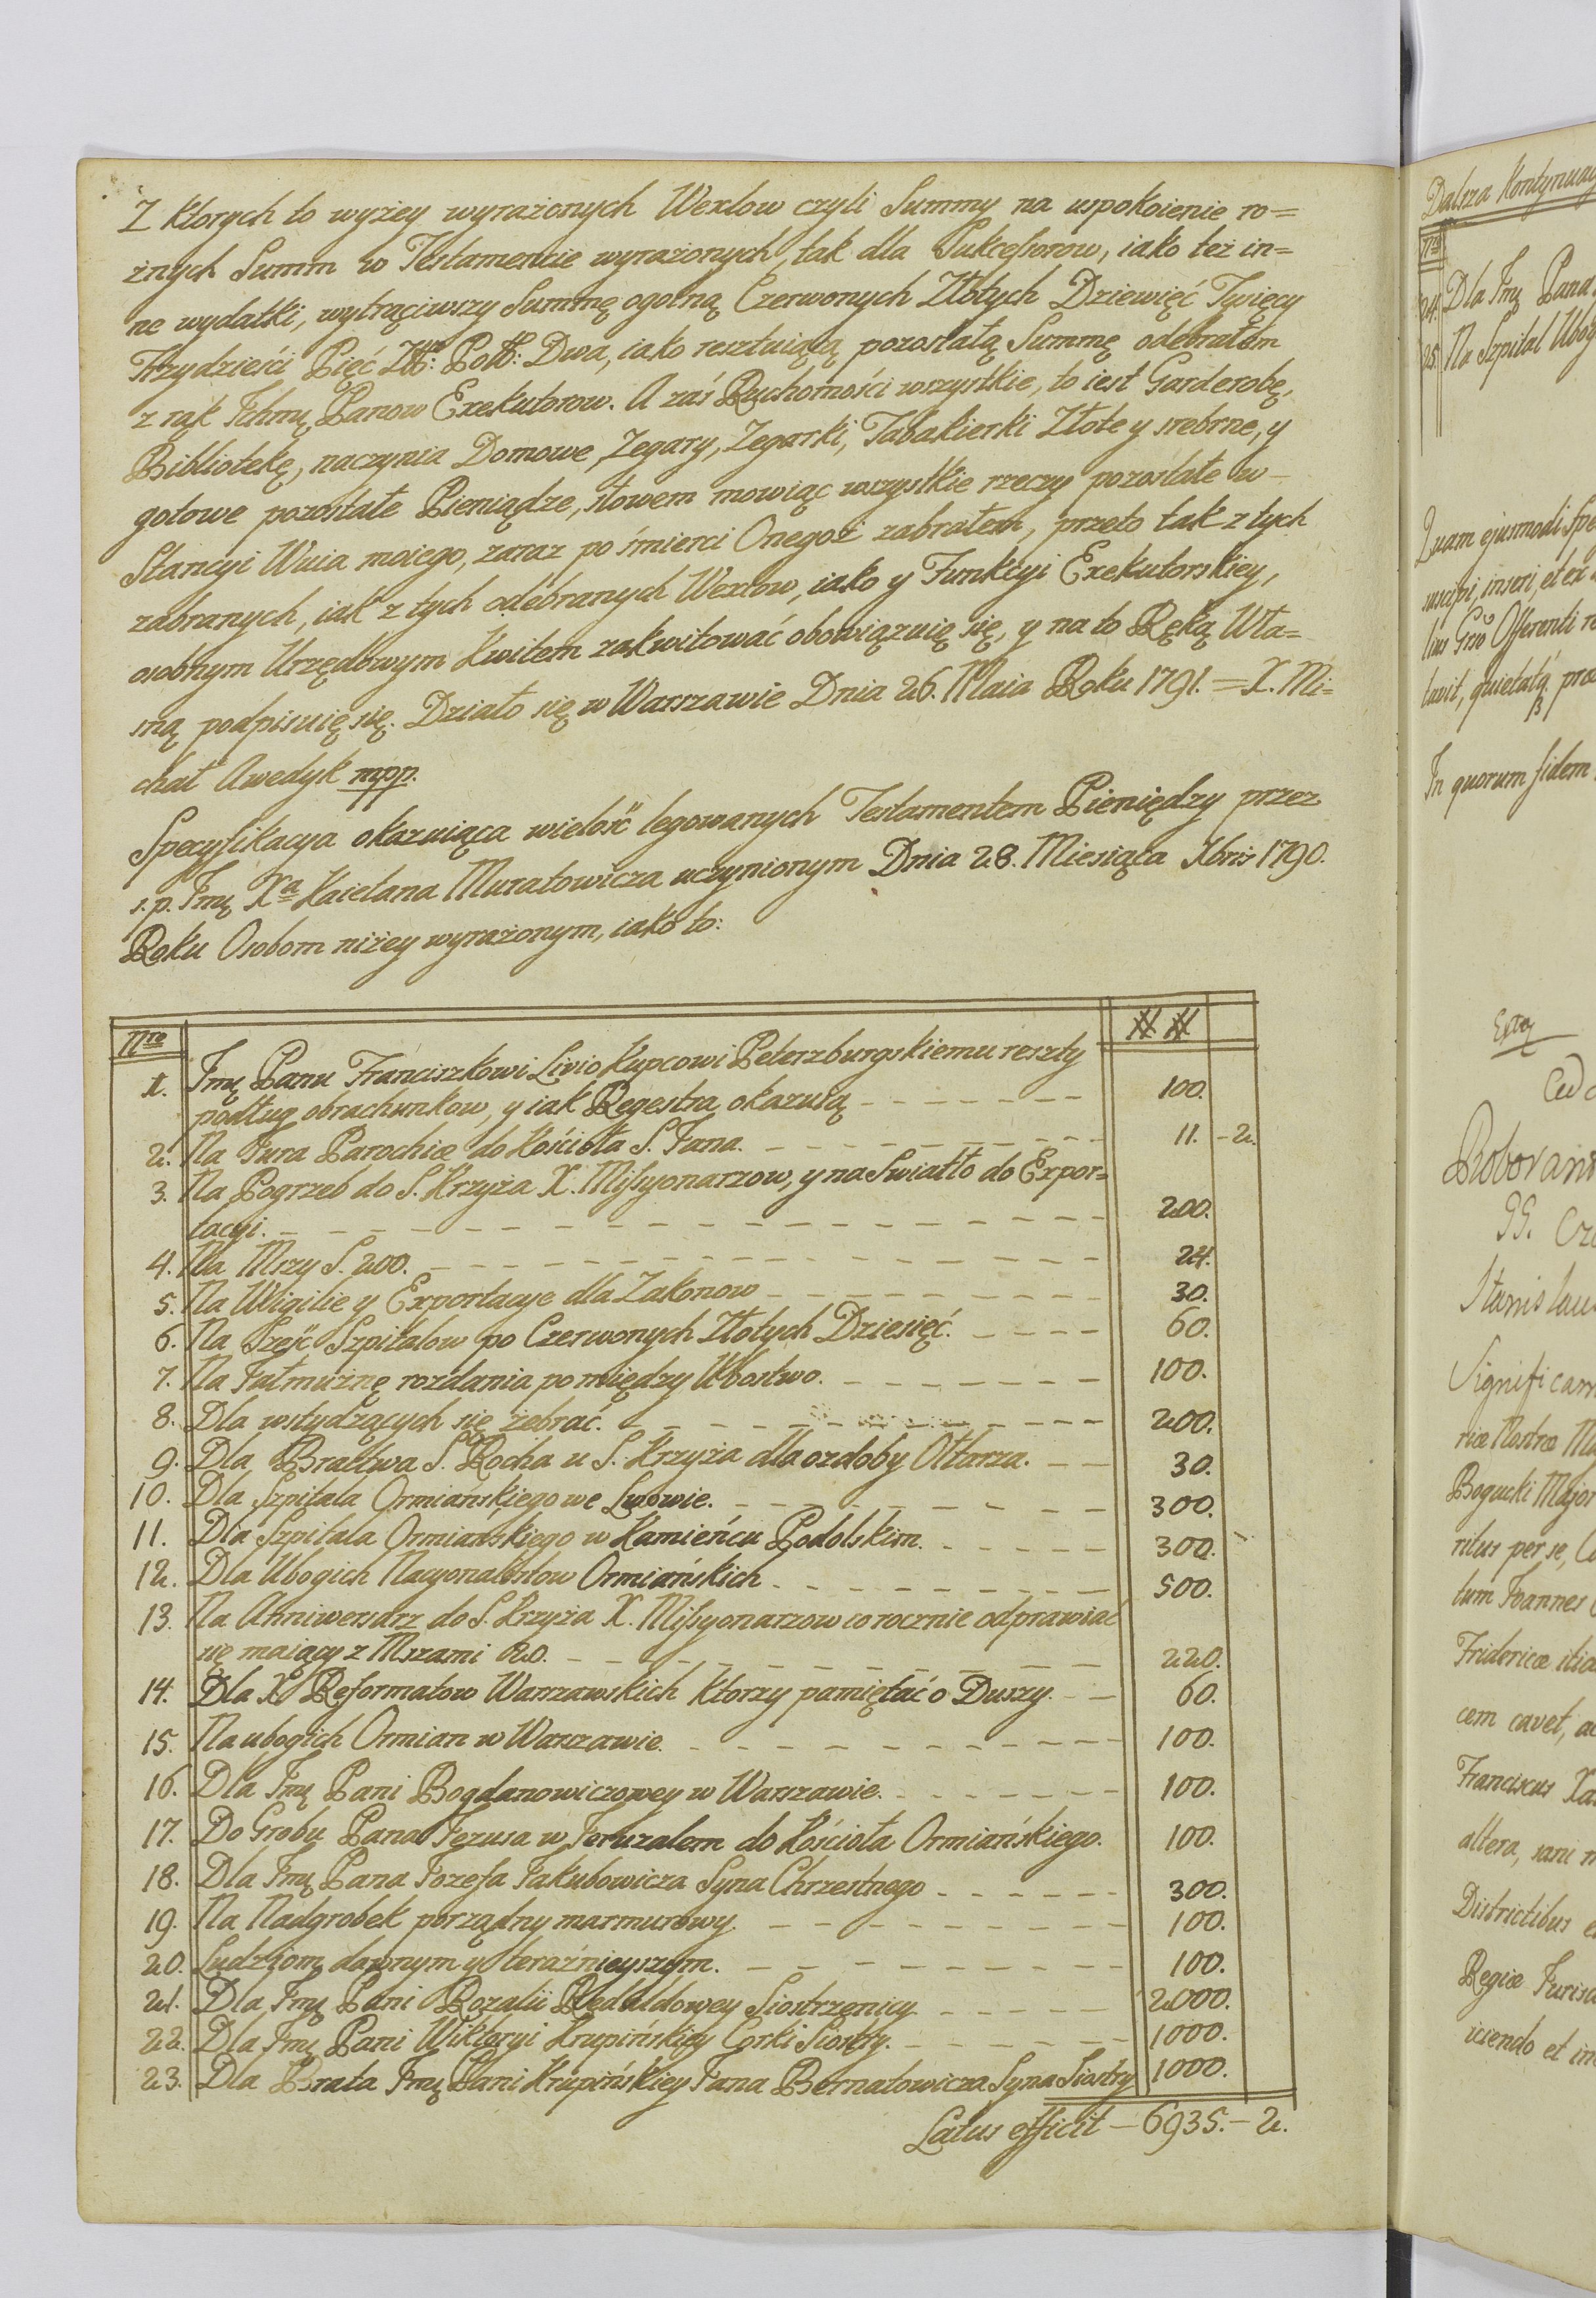 Z ktorych to wyżey wyrażonych Wexlow czyli Summy na uspokoienie ro=
żnych Summ w Testamencie wyrażonych, tak dla Sukceſsorow, iako też in=
ne wydatki, wytrąciwszy Summę ogolną Czerwonych Złotych Dziewięć Tysięcy
Trzydzieści Pięć Złł: Poll: Dwa, iako resztuiącą pozostałą Summę odebrałem
z rąk Ichmę Panow Exekutorow. A zaś Ruchomości wszystkie, to iest Garderobę,
Bibliotekę, naczynia Domowe, Zegary, Zegarki, Tabakierki Złote y srebrne, y
gotowe pozostałe Pieniądze, słowem mowiąc wszystkie rzeczy pozostałe w
Stancyi Wuia moiego, zaraz po śmierci Onegoż zabrałem, przeto tak z tych
zabranych, iak z tych odebranych Wexlow, iako y Funkcyi Exekutorskiey,
osobnym Urzędowym Kwitem zakwitować obowiązuię się, y na to Ręką Wła=
sną podpisuię się. Działo się w Warszawie Dnia 26. Maia Roku 1791. = X. Mi=
chał Awedyk mpp.
Specyfikacya okazuiąca wielość legowanych Testamentem Pieniędzy przez
s. p. Jmę Xa Kaietana Muratowicza uczynionym Dnia 28. Miesiąca Xbris 1790.
Roku Osobom niżey wyrażonym, iako to:
Nro # #
1. Jmę Panu Franciszkowi Livio Kupcowi Peterzburgskiemu reszty
podług obrachunkow, y iak Regestra okazuią 100.
2. Na Jura Parochiæ do Kościoła S. Jana. 11. - 2.
3. Na Pogrzeb do S. Krzyża X. Miſsyonarzow, y na Swiatło do Expor=
tacyi. 200.
4. Na Mszy S. 200. 24.
5. Na Wigilie y Exportacye dla Zakonow 30.
6. Na Sześć Szpitalow po Czerwonych Złotych Dziesięć. 60.
7. Na Jałmużnę rozdania pomiędzy Ubostwo. 100.
8. Dla wstydzących się żebrać. 200.
9. Dla Bractwa S. Rocha u S. Krzyża dla ozdoby Ołtarza. 30.
10. Dla Szpitala Ormiańskiego we Lwowie. 300.
11. Dla Szpitala Ormiańskiego w Kamieńcu Podolskim. 300.
12. Dla Ubogich Nacyonalistow Ormiańskich 500.
13. Na Anniwersarz do S. Krzyża X. Miſsyonarzow corocznie odprawiać
się maiący z Mszami 20. 220.
14. Dla X Reformatow Warszawskich ktorzy pamiętać o Duszy. 60.
15. Na ubogich Ormian w Warszawie. 100.
16. Dla Jmę Pani Bogdanowiczowey w Warszawie. 100.
17. Do Grobu Pana Jezusa w Jeruzalem do Kościoła Ormiańskiego. 100.
18. Dla Jmę Pana Jozefa Jakubowicza Syna Chrzestnego 300.
19. Na Nadgrobek porządny marmurowy. 100.
20. Ludziom dawnym y teraźnieyszym. 100.
21. Dla Jmę Pani Rozalii Siostrzenicy 2000.
22. Dla Jmę Pani Wiktoryi Krupińskiey Corki Siostry. 1000.
23. Dla Brata Jmę Pani Krupińskiey Jana Bernatowicza Syna Siostry 1000.
Latus efficit - 6935. - 2.
Dalsza
Nro
24. Dla Jmę Pana
25. Na Szpital
Quam ejusmodi
suscipi, inseri, et ex
Offerenti
tavit,
In quorum fidem
Significam
Nostræ
Bogucki Major
ritus per se,
tum Joannes
cem cavet,
Franciscus
altera, sani
Districtibus
Regiæ
et in